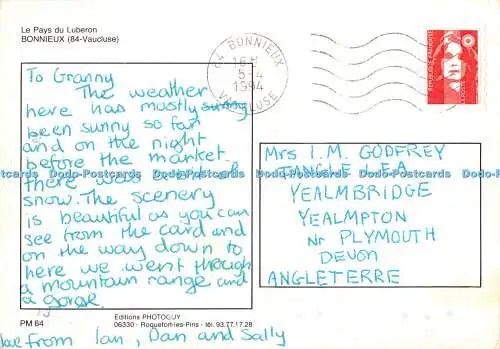 Le Pays du Luberon
BONNIEUX (84-Vaucluse)
84 BONNIEUX
16 H
5-4
1994
VAUCLUSE
REPUBLIQUE FRANCAISE
LA POSTE
To Granny
The weather
here has mostly sunny
been sunny so far
and on the night
before the market
there was even
snow. The scenery
is beautiful as you can
see from the card and
on the way down to
here we went through
a mountain range and
a gorge.
Mrs I.M. GODFREY
TANGLE LEA
YEALMBRIDGE
YEALMPTON
Nr PLYMOUTH
DEVON
ANGLETERRE
Dodo-Postcards Dodo-Postcards Dodo-Postcards Dodo-Postcards Dodo-Postcards
PM 64
Editions PHOTOGUY
06330 - Roquefort-les-Pins - tél. 93.77.17.28
from Ian, Dan and Sally